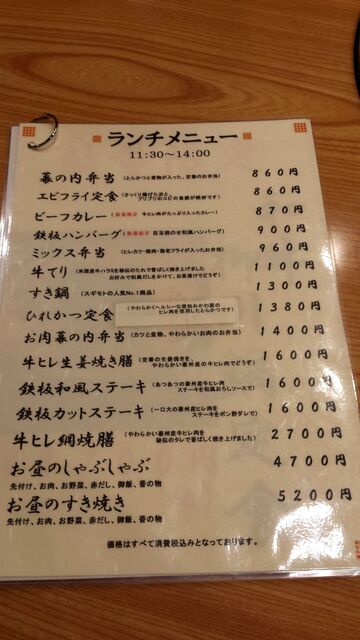 ランチメニュー
11:30〜14:00
幕の内弁当 (とんかつと煮物が入った、定番のお弁当) 860円
エビフライ定食 (さっくり揚げた衣と、プリプリのエビの食感が絶妙です) 860円
ビーフカレー (数量限定 牛ヒレ肉がたっぷり入ったカレー) 870円
鉄板ハンバーグ (数量限定 目玉焼のせ和風ハンバーグ) 900円
ミックス弁当 (ヒレカツ・焼肉・海老フライが入ったお弁当) 960円
牛てり (米国産牛ハラミを秘伝のたれで香ばしく焼き上げました お好みで和風だしをかけて、お茶漬けでどうぞ) 1100円
すき鍋 (スギモトの人気No.1商品) 1300円
ひれかつ定食 (やわらかくヘルシーな愛知みかわ豚のヒレ肉を使用したとんかつです) 1380円
お肉幕の内弁当 (カツと煮物、やわらかいお肉のお弁当) 1400円
牛ヒレ生姜焼き膳 (定番の生姜焼きを、やわらかい豪州産の牛ヒレ肉でどうぞ) 1600円
鉄板和風ステーキ (あつあつの豪州産牛ヒレ肉ステーキを和風おろしソースで) 1600円
鉄板カットステーキ (一口大の豪州産牛ヒレ肉をステーキをポン酢ダレで) 1600円
牛ヒレ網焼膳 (やわらかい豪州産牛ヒレ肉を秘伝のタレで香ばしく焼き上げました) 2700円
お昼のしゃぶしゃぶ 4700円
先付け、お肉、お野菜、赤だし、御飯、香の物
お昼のすき焼き 5200円
先付け、お肉、お野菜、赤だし、御飯、香の物
価格はすべて消費税込みとなっております。